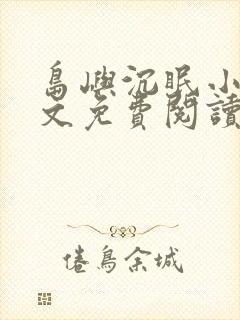 島嶼沉眠小
文免費閱讀
倦鳥余城